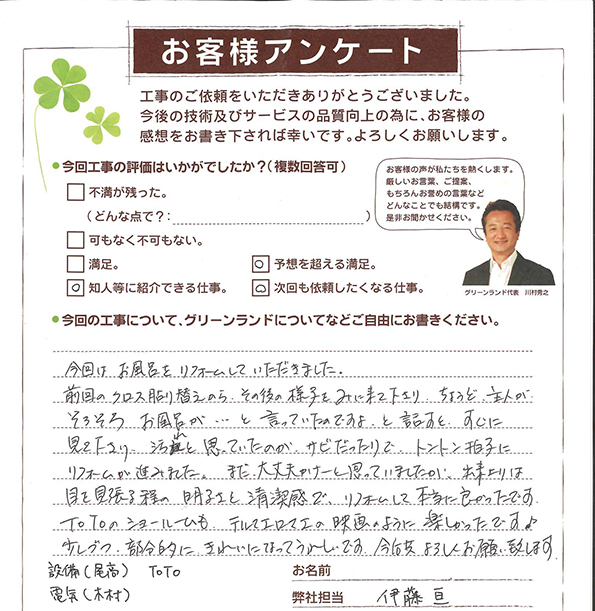 お客様アンケート
工事のご依頼をいただきありがとうございました。
今後の技術及びサービスの品質向上の為に、お客様の
感想をお書き下されば幸いです。よろしくお願いします。
●今回工事の評価はいかがでしたか？（複数回答可）
不満が残った。
（どんな点で？：　）
可もなく不可もない。
満足。
○ 予想を超える満足。
○ 知人等に紹介できる仕事。
○ 次回も依頼したくなる仕事。
お客様の声が私たちを熱くします。
厳しいお言葉、ご提案、
もちろんお誉めの言葉など
どんなことでも結構です。
是非お聞かせください。
グリーンランド代表　川村秀之
●今回の工事について、グリーンランドについてなどご自由にお書きください。
今回は お風呂をリフォームしていただきました。
前回のクロス貼り替えのち、その後の様子をみに来て下さり、ちょうど、主人が
そろそろ お風呂が…と言っていたのですよ、と話すと、すぐに
見て下さり、汚れと思っていたのが、サビだったりで、トントン拍子に
リフォームが進みました。まだ大丈夫かなーと思っていましたが、出来上りは
目を見張る程の 明るさと清潔感で、リフォームして本当に良かったです。
TOTOのショールームも テルマエロマエの映画のように 楽しかったです♪
少しずつ、部分的に きれいになってうれしいです 今後共 よろしくお願い致します
設備(尾高) TOTO
電気(木村)
お名前
弊社担当 伊藤 亘